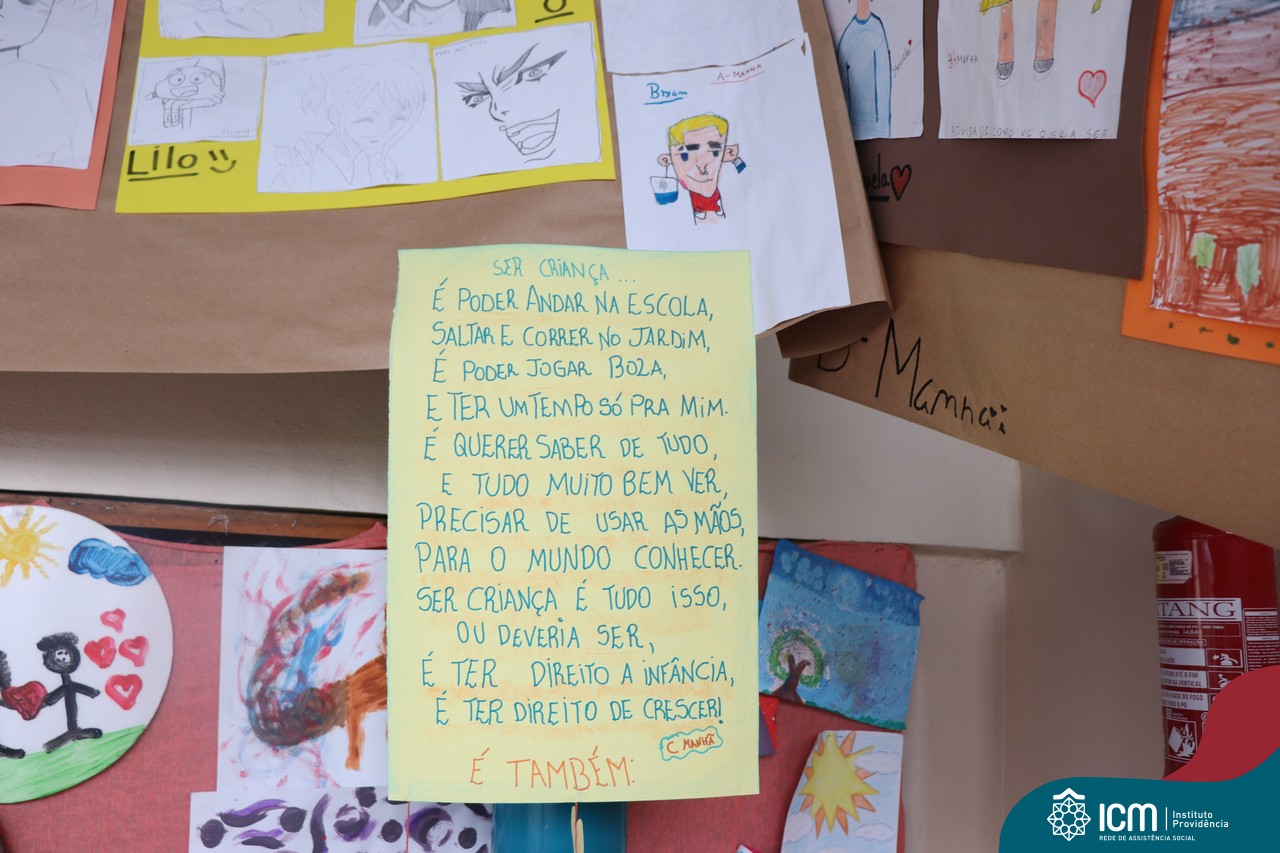 Lilo
Bryam
A-MANHA
3ª-MANHA
ATIVIDADE COMO VC QUERIA SER
SER CRIANÇA...
É PODER ANDAR NA ESCOLA,
SALTAR E CORRER NO JARDIM,
É PODER JOGAR BOLA,
E TER UM TEMPO SÓ PRA MIM.
É QUERER SABER DE TUDO,
E TUDO MUITO BEM VER,
PRECISAR DE USAR AS MÃOS,
PARA O MUNDO CONHECER.
SER CRIANÇA É TUDO ISSO,
OU DEVERIA SER,
É TER DIREITO A INFÂNCIA,
É TER DIREITO DE CRESCER!
C MANHÃ
É TAMBÉM:
Manhã
TANG
ICM
Instituto
Providência
REDE DE ASSISTÊNCIA SOCIAL